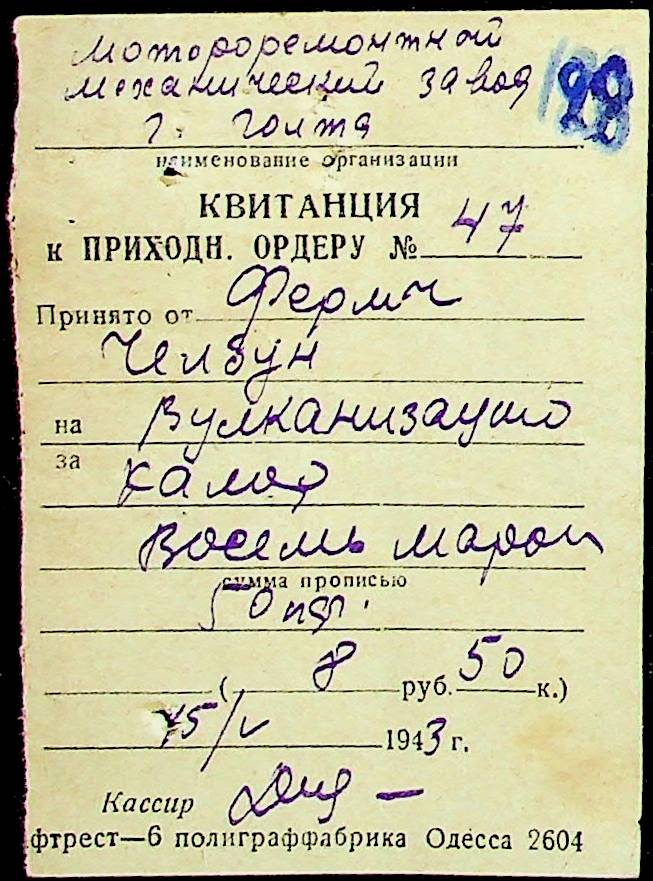 Мотороремонтной
механический завод
г. Голта
98
наименование организации
КВИТАНЦИЯ
к ПРИХОДН. ОРДЕРУ № 47
Принято от Ферми
Челбун
на Вулканизацию
за камер
Восемь марок
сумма прописью
50 пф.
( 8 руб. 50 к.)
15/V 1943 г.
Кассир
фтрест—6 полиграффабрика Одесса 2604